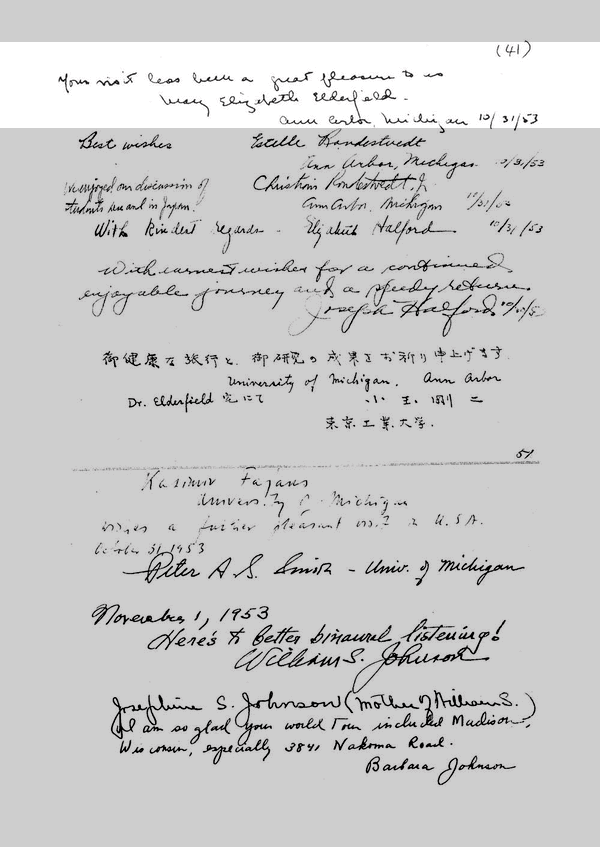 (41)
Your visit has been a great pleasure to us
Mary Elizabeth Elderfield.
Ann Arbor, Michigan 10/31/53
Best wishes Estelle Rondestvedt
Ann Arbor, Michigan 10/31/53
We enjoyed our discussion of Christian Rondestvedt, Jr.
students here and in Japan. Ann Arbor, Michigan 10/31/53
With kindest regards - Elizabeth Halford 10/31/53
With earnest wishes for a continued
enjoyable journey and a speedy return.
Joseph Halford 10/31/53
御健康な旅行と、御研究の成果をお祈り申上げます.
University of Michigan. Ann Arbor
Dr. Elderfield 宅にて 小玉剛二
東京工業大学.
51
Kasimir Fajans
University of Michigan
wishes a further pleasant visit in U.S.A.
October 31, 1953
Peter A. S. Smith - Univ. of Michigan
November 1, 1953
Here's to better binaural listening!
William S. Johnson
Josephine S. Johnson (Mother of William S.)
I am so glad your world tour included Madison,
Wisconsin, especially 3841 Nakoma Road.
Barbara Johnson